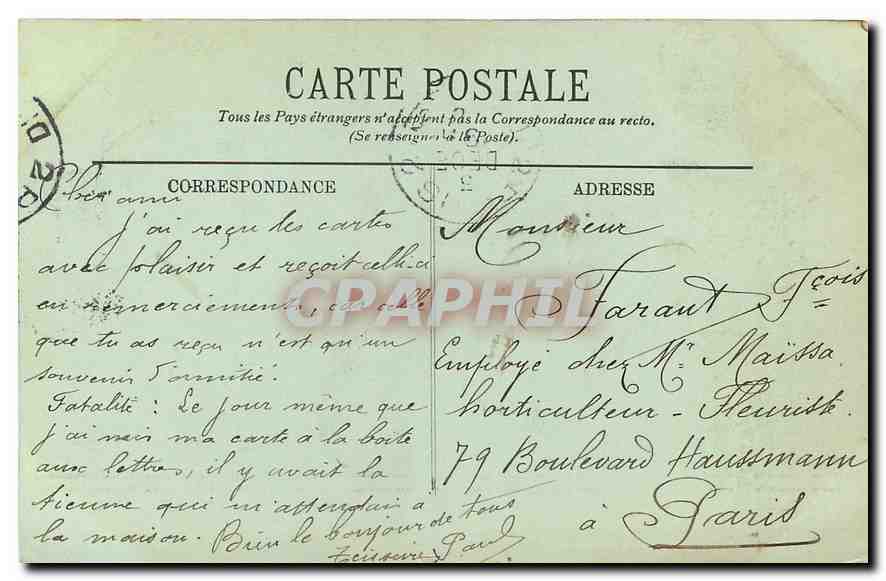 CARTE POSTALE
Tous les Pays étrangers n'acceptent pas la Correspondance au recto.
(Se renseigner à la Poste).
CORRESPONDANCE
Cher ami
J'ai reçu les cartes
avec plaisir et reçoit celle-ci
en remerciements, car celle
que tu as reçu n'est qu'un
souvenir d'amitié.
Fatalité : Le jour même que
j'ai mis ma carte à la boîte
aux lettres, il y avait la
tienne qui m'attendait à
la maison. Bien le bonjour de tous
Teisseire Paul
ADRESSE
Monsieur
Faraut Fçois
Employé chez Mr Maïssa
horticulteur - Fleuriste.
79 Boulevard Haussmann
à Paris
CPAPHIL